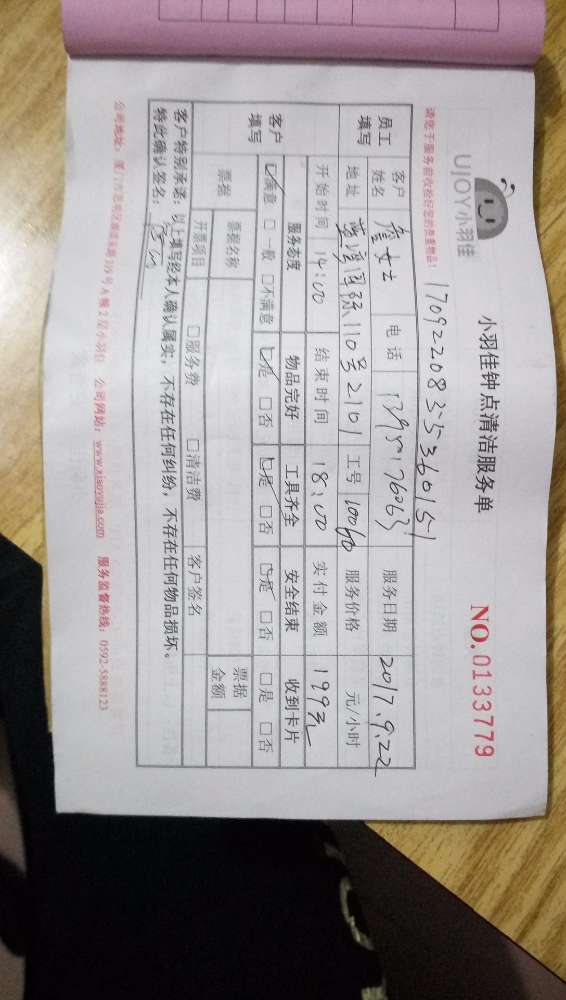 UJOY小羽佳
小羽佳钟点清洁服务单
NO.0133779
请您于服务前收捡好您的贵重物品!
17092208355360151
员工填写 客户姓名 詹女士 电话 13950176063 服务日期 2017.9.22
地址 蓝湾国际110号2101 工号 10060 服务价格 元/小时
开始时间 14:00 结束时间 18:00 实付金额 199元
客户填写 服务态度 物品完好 工具齐全 安全结束 收到卡片
□满意 □一般 □不满意 □是 □否 □是 □否 □是 □否 □是 □否
票据 票据名称 票据金额
开票项目 □服务费 □清洁费 客户签名
客户特别承诺:以上填写经本人确认属实,不存在任何纠纷,不存在任何物品损坏。
特此确认签名:
公司网站:www.xiaoyujia.com 服务监督热线:0592-5888123